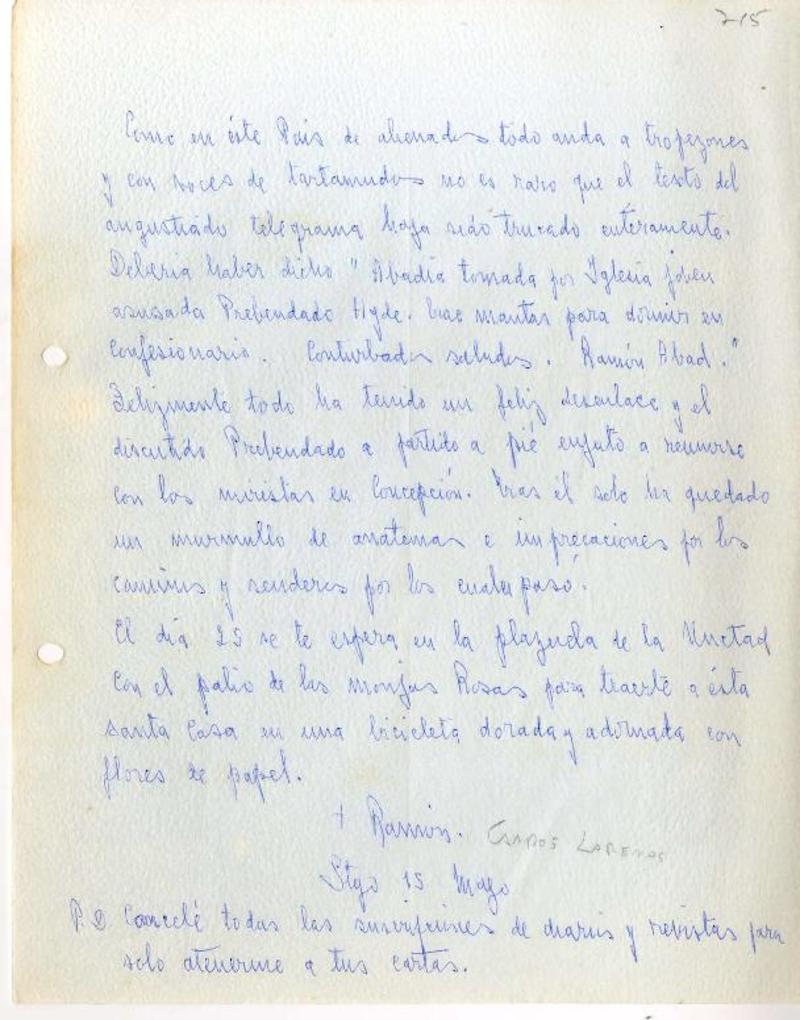 715
Como en éste País de alienados todo anda a tropezones
y con voces de tartamudos no es raro que el texto del
angustiado telegrama haya sido trucado enteramente.
Debería haber dicho " Abadía tomada por Iglesia joven
acusada Prebendado Hyde. Trae mantas para dormir en
Confesionario. Conturbados saludos. Ramón Abad."
Felizmente todo ha tenido un feliz desenlace y el
discutido Prebendado a partido a pié enjuto a reunirse
con los miristas en Concepción. Tras él solo ha quedado
un murmullo de anatemas e imprecaciones por los
caminos y senderos por los cuales pasó.
El día 25 se te espera en la plazuela de la Unctad
con el palio de las monjas Rosas para traerte a ésta
santa Casa en una bicicleta dorada y adornada con
flores de papel.
+ Ramón. Carlos Lorenos
Stgo 15 Mayo
P.D. Cancelé todas las suscripciones de diarios y revistas para
solo atenerme a tus cartas.